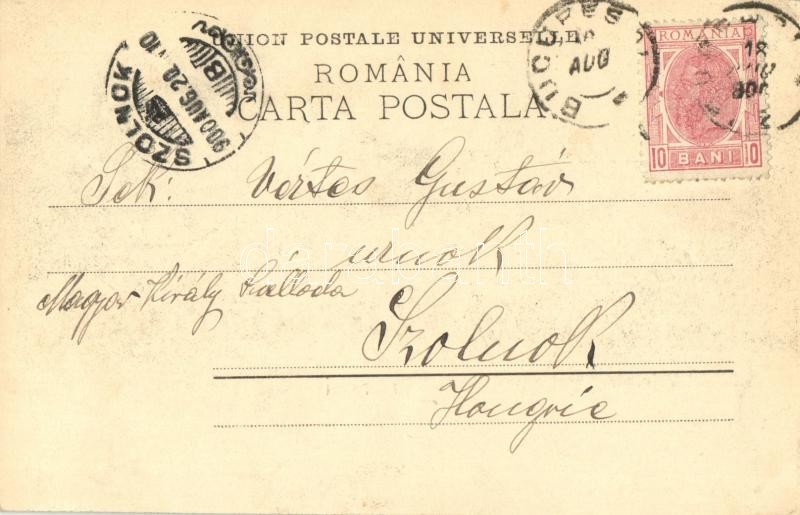 UNION POSTALE UNIVERSELLE
ROMÂNIA
CARTA POSTALA
SZOLNOK
900 AUG. 20.
B
BUCUREST
AUG
ROMANIA
10 BANI 10
Vértes Gusztáv
urnok
Magyar Király Szálloda
Szolnok
Hongrie
darabanth